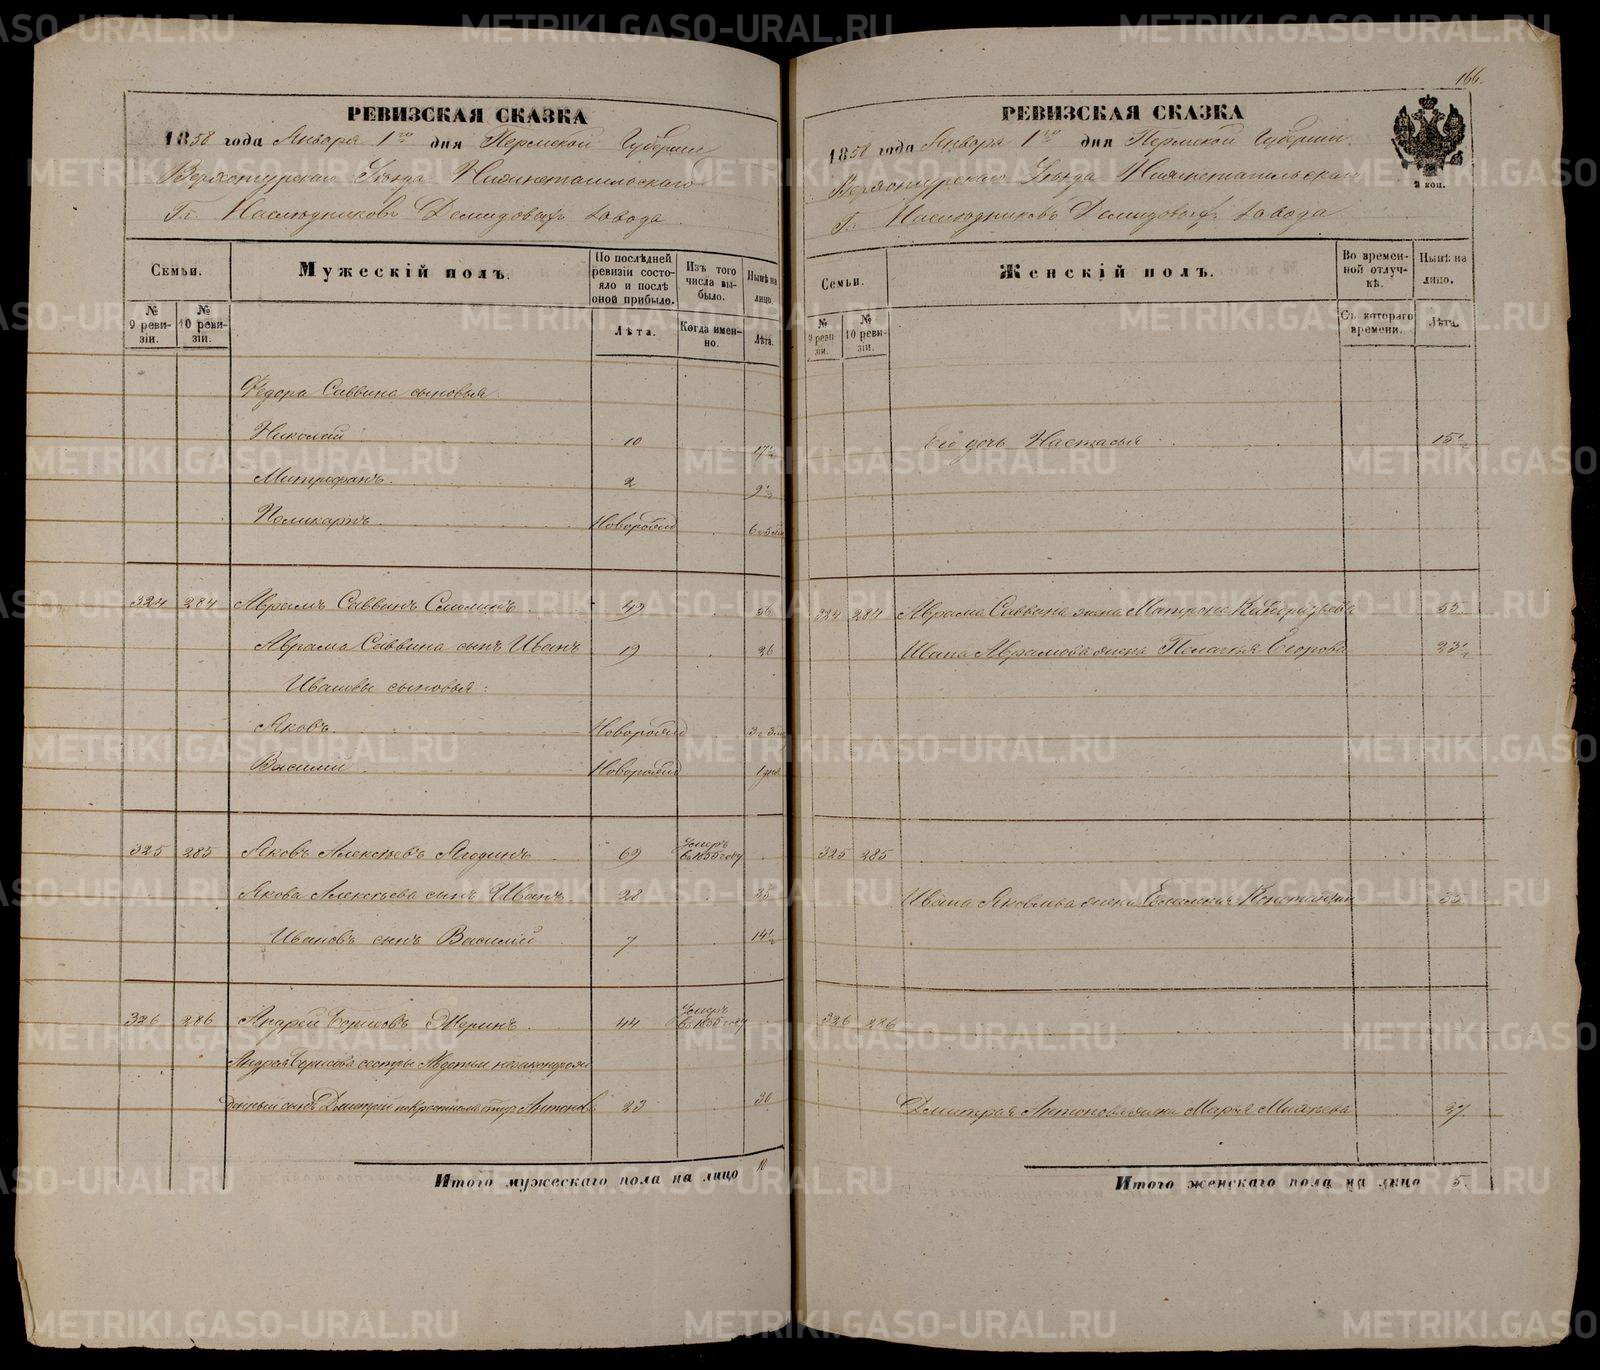 166.
РЕВИЗСКАЯ СКАЗКА
1858 года Января 1го дня Пермской Губернии
Верхотурскаго Уѣзда Нижнетагильскаго
Гг. Наслѣдниковъ Демидовыхъ завода
Семьи.
Мужескій полъ.
По послѣдней ревизіи состояло и послѣ оной прибыло.
Изъ того числа выбыло.
Нынѣ на лицо.
№ 9 ревизіи.
№ 10 ревизіи.
Лѣта.
Когда именно.
Лѣта.
Ѳедора Саввина сыновья
Николай 10 17½
Митрофанъ 2 9½
Поликарпъ Новорожд
324 284 Аврамъ Саввинъ 49 56
Аврама Саввина сынъ Иванъ 19 26
Ивановы сыновья:
Яковъ Новорожд
Василій Новорожд 1 дня
325 285 Яковъ Алексѣевъ Ягодинъ 69 Умеръ въ 1855 году
Якова Алексѣева сынъ Иванъ 28 35
Ивановъ сынъ Василій 7 14½
326 286 Андрей Борисовъ 44 Умеръ въ 1855 году
Андрея Борисова сестры Авдотьи незаконорож
денный сынъ Дмитрій по Крестному отцу Антоновъ 23 30
Итого мужескаго пола на лицо 10
РЕВИЗСКАЯ СКАЗКА
1858 года Января 1го дня Пермской Губерніи
Верхотурскаго Уѣзда Нижнетагильскаго
Гг. Наслѣдниковъ Демидовыхъ завода
2 коп.
Семьи.
Женскій полъ.
Во временной отлучкѣ.
Нынѣ на лицо.
№ 9 ревизіи.
№ 10 ревизіи.
Съ котораго времени.
Лѣта.
Его дочь Настасья 15½
324 284 Аврама Саввина жена Матрона 55
Ивана Аврамова жена Пелагея Егорова 23½
325 285
Ивана Яковлева жена 35
326 286
Дмитрія Антонова жена Марья 27
Итого женскаго пола на лицо 5.
METRIKI.GASO-URAL.RU